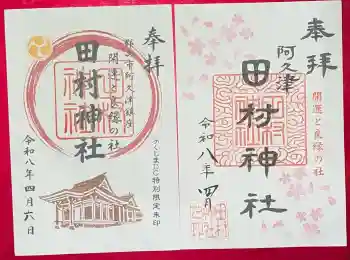 奉拝
郡山市阿久津鎮座
開運と良縁の社
田村神社
令和八年四月六日
特別限定朱印
奉拝
阿久津
田村神社
開運と良縁の社
令和八年四月